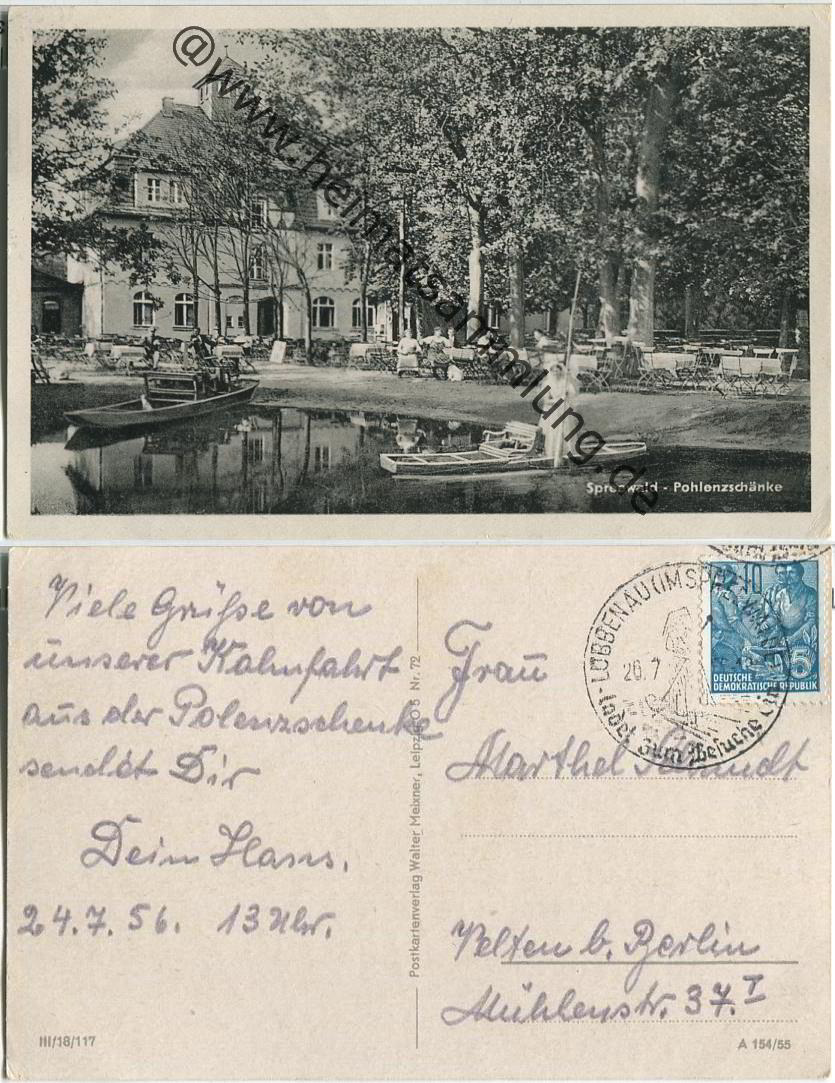 @www.heimatsammlung.de
Spreewald - Pohlenzschänke
Viele Grüße von
unserer Kahnfahrt
aus der Polenzschenke
sendet Dir
Dein Hans.
24.7.56. 13 Uhr.
III/18/117
Postkartenverlag Walter Meixner, Leipzig O 5 Nr. 72
LÜBBENAU (IM SPREEWALD)
20.7
ladet zum Besuche ein
10
5
DEUTSCHE
DEMOKRATISCHE REPUBLIK
Frau
Marthel Schmidt
Velten b. Berlin
Mühlenstr. 37. I
A 154/55